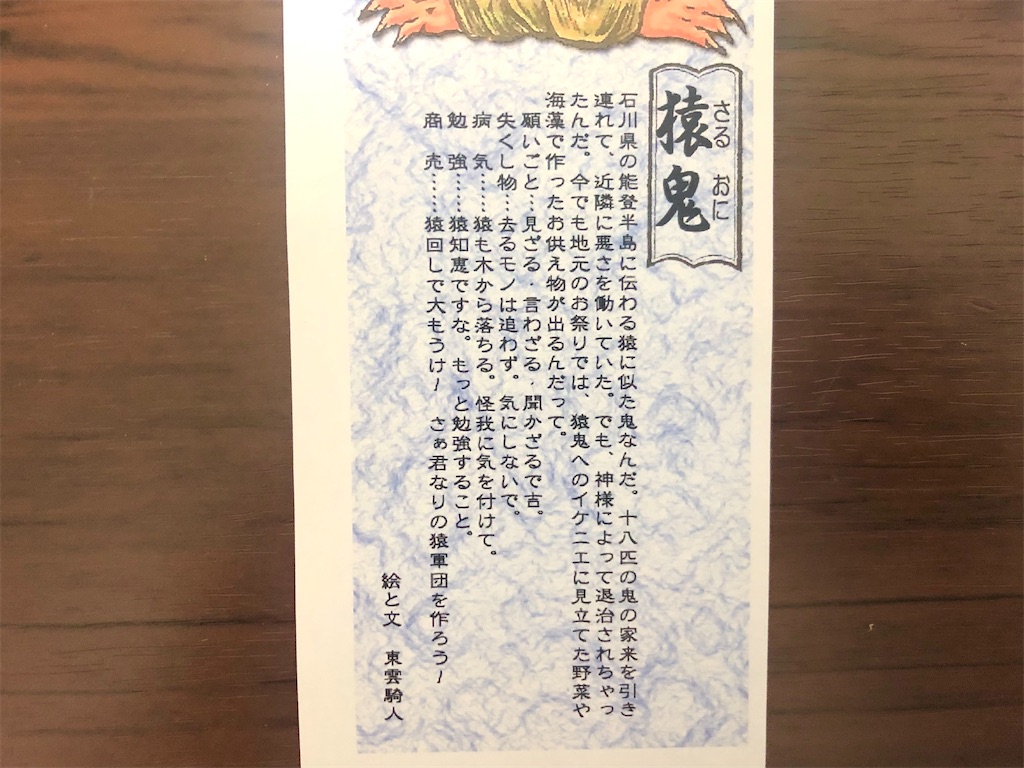 猿鬼
さる おに
石川県の能登半島に伝わる猿に似た鬼なんだ。十八匹の鬼の家来を引き
連れて、近隣に悪さを働いていた。でも、神様によって退治されちゃっ
たんだ。今でも地元のお祭りでは、猿鬼へのイケニエに見立てた野菜や
海藻で作ったお供え物が出るんだって。
願いごと…見ざる・言わざる・聞かざるで吉。
失くし物…去るモノは追わず。気にしないで。
病 気……猿も木から落ちる。怪我に気を付けて。
勉 強……猿知恵ですな。もっと勉強すること。
商 売……猿回しで大もうけ! さぁ君なりの猿軍団を作ろう!
絵と文 東雲騎人